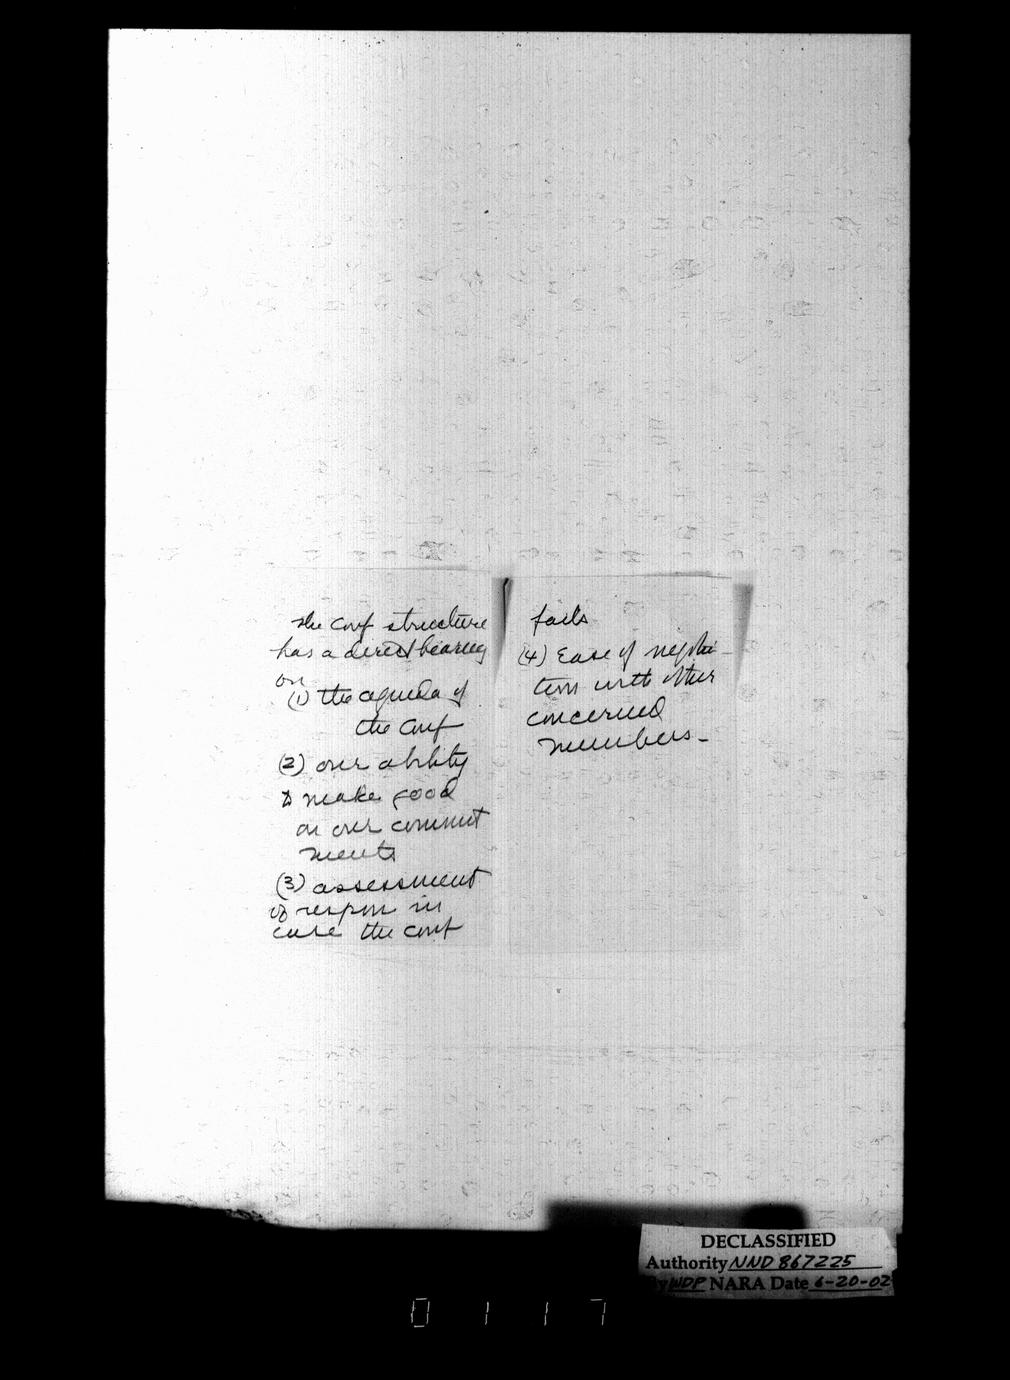 The conf structure
has a direct bearing
on
(1) the agenda of
the conf
(2) our ability
to make good
on our commit
ments
(3) assessment
of respon in
case the conf
fails
(4) Ease of negotia-
tion with other
concerned
members-
DECLASSIFIED
Authority NND 867225
By WDP NARA Date 6-20-02
0117